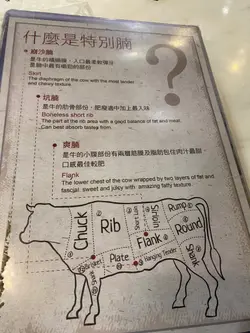 什麼是特別腩
• 崩沙腩
是牛的橫膈膜，入口最柔軟彈滑
是腩中最有嚼勁的部份
Skirt
The diaphragm of the cow with the most tender
and chewy texture.
• 坑腩
是牛的肋骨部份，肥瘦適中加上最入味
Boneless short rib
The part at the rib area with a good balance of fat and meat.
Can best absorb flavour from.
• 爽腩
是牛的小腹部份有兩層筋膜及脂肪包住肉汁最甜，
口感最佳較肥
Flank
The lower chest of the cow wrapped by two layers of fat and
fascial. sweet and juicy with amazing fatty texture
?
Chuck
Rib
Short Loin
Sirloin
Rump
Round
Brisket
Plate
Flank
Hanging Tender
Shank
Shank